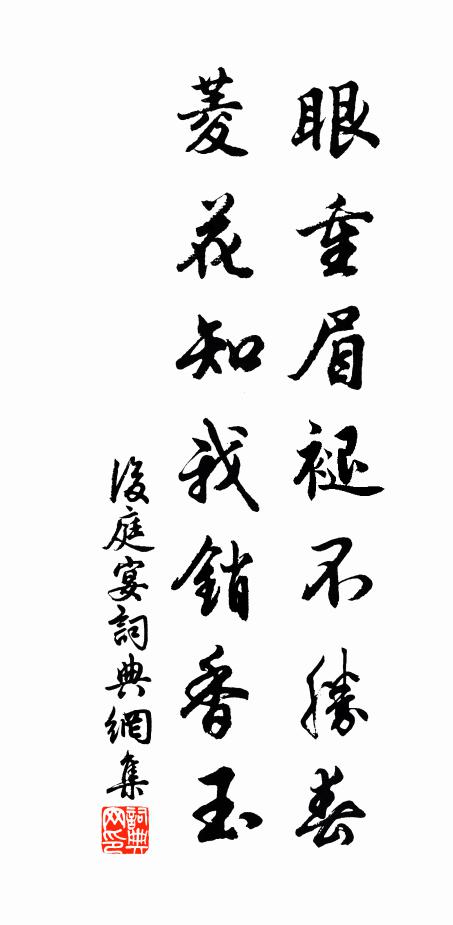 眼重眉褪不勝春
菱花知我銷香玉
後庭宴詞典網集
詞典网印